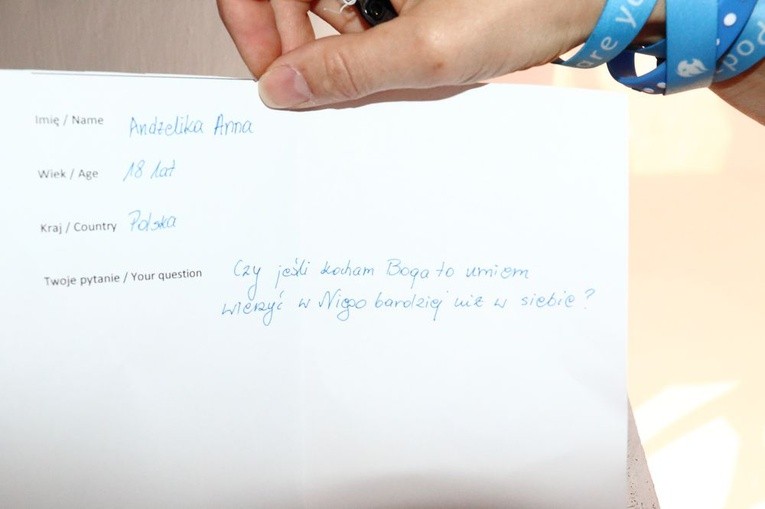 Imię / Name Andżelika Anna
Wiek / Age 18 lat
Kraj / Country Polska
Twoje pytanie / Your question Czy jeśli kocham Boga to umiem
wierzyć w Niego bardziej niż w siebie?
are yo